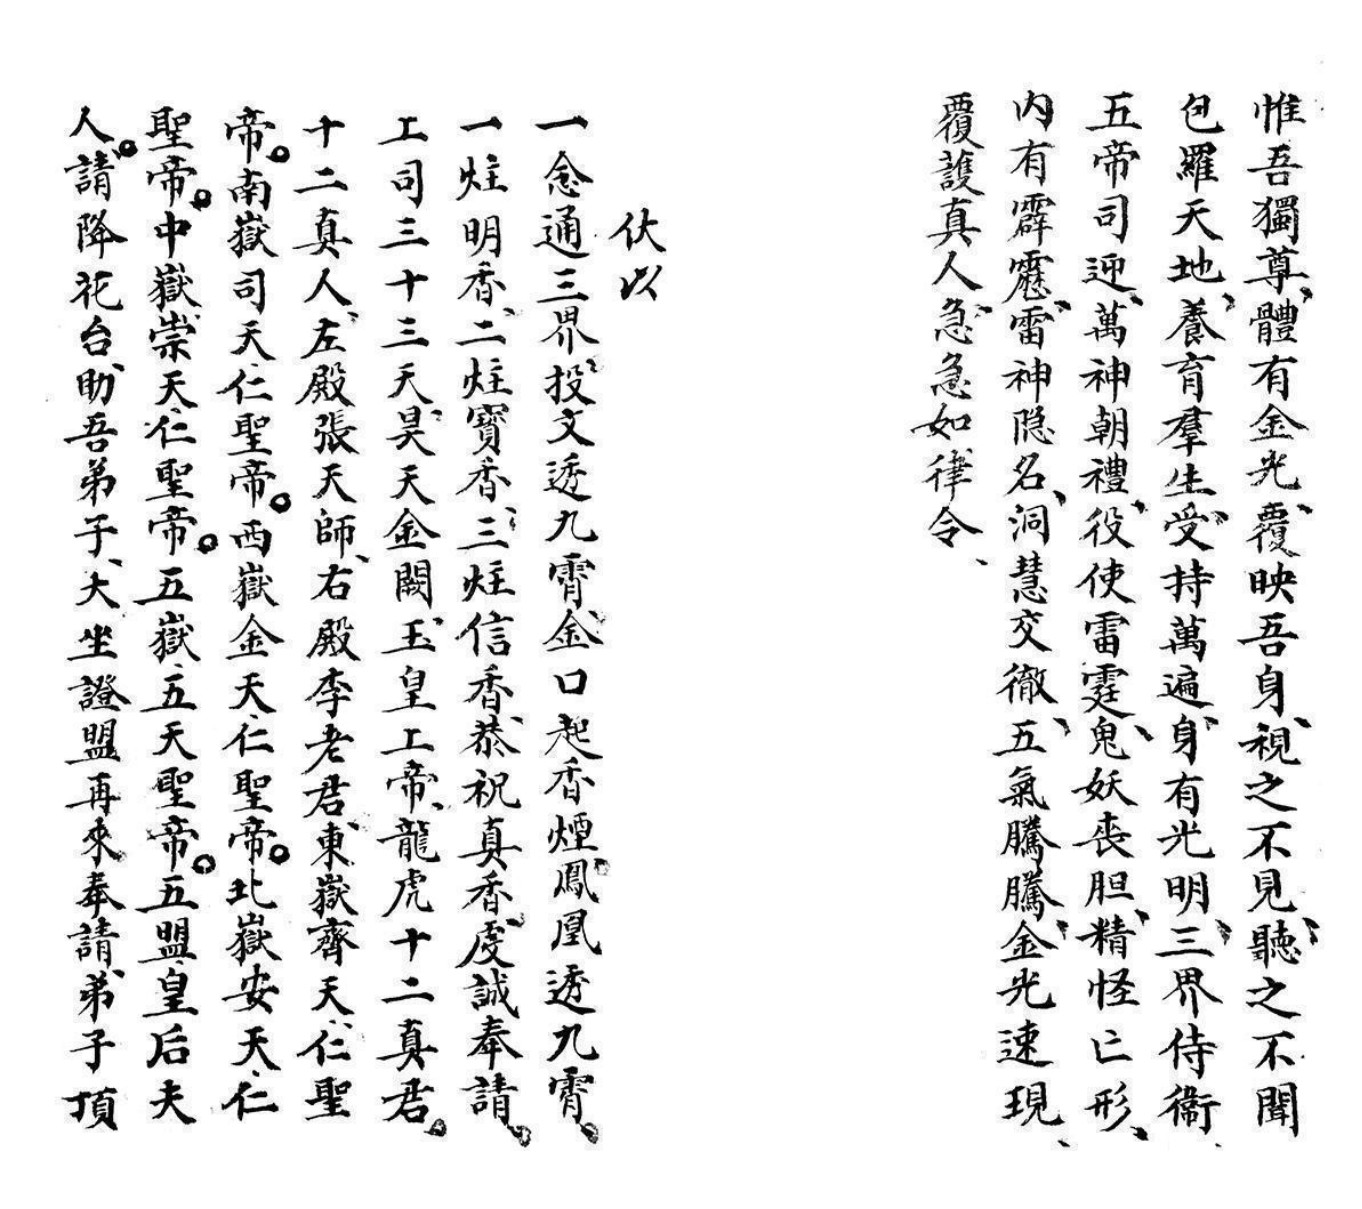 惟吾獨尊、體有金光、覆映吾身、視之不見、聽之不聞
包羅天地、養育羣生、受持萬遍、身有光明、三界侍衛、
五帝司迎、萬神朝禮、役使雷霆、鬼妖丧胆、精怪亡形、
内有霹靂、雷神隐名、洞慧交徹、五氣騰騰、金光速現、
覆護真人、急急如律令、
伏以
一念通三界、投文透九霄、金口起香煙、鳳凰透九霄。
一炷明香、二炷寶香、三炷信香、恭祝真香、虔誠奉請。
上司三十三天、昊天金闕、玉皇上帝、龍虎十二真君。
十二真人、左殿張天師、右殿李老君、東嶽齊天、仁聖
帝。南嶽司天、仁聖帝。西嶽金天、仁聖帝。北嶽安天、仁
聖帝。中嶽、崇天、仁聖帝。五嶽、五天聖帝。五盟皇后夫
人。請降花台、助吾弟子、大坐證盟再來奉請、弟子頂